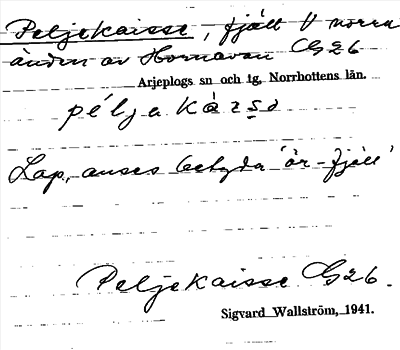 Peljekaisse, fjäll V norra
änden av Hornavan G26
Arjeplogs sn och tg, Norrbottens län.
pél̦je kàr̦sɔ
Lap., anses betyda 'ör-fjäll'
Peljekaisse G26.
Sigvard Wallström, 1941.